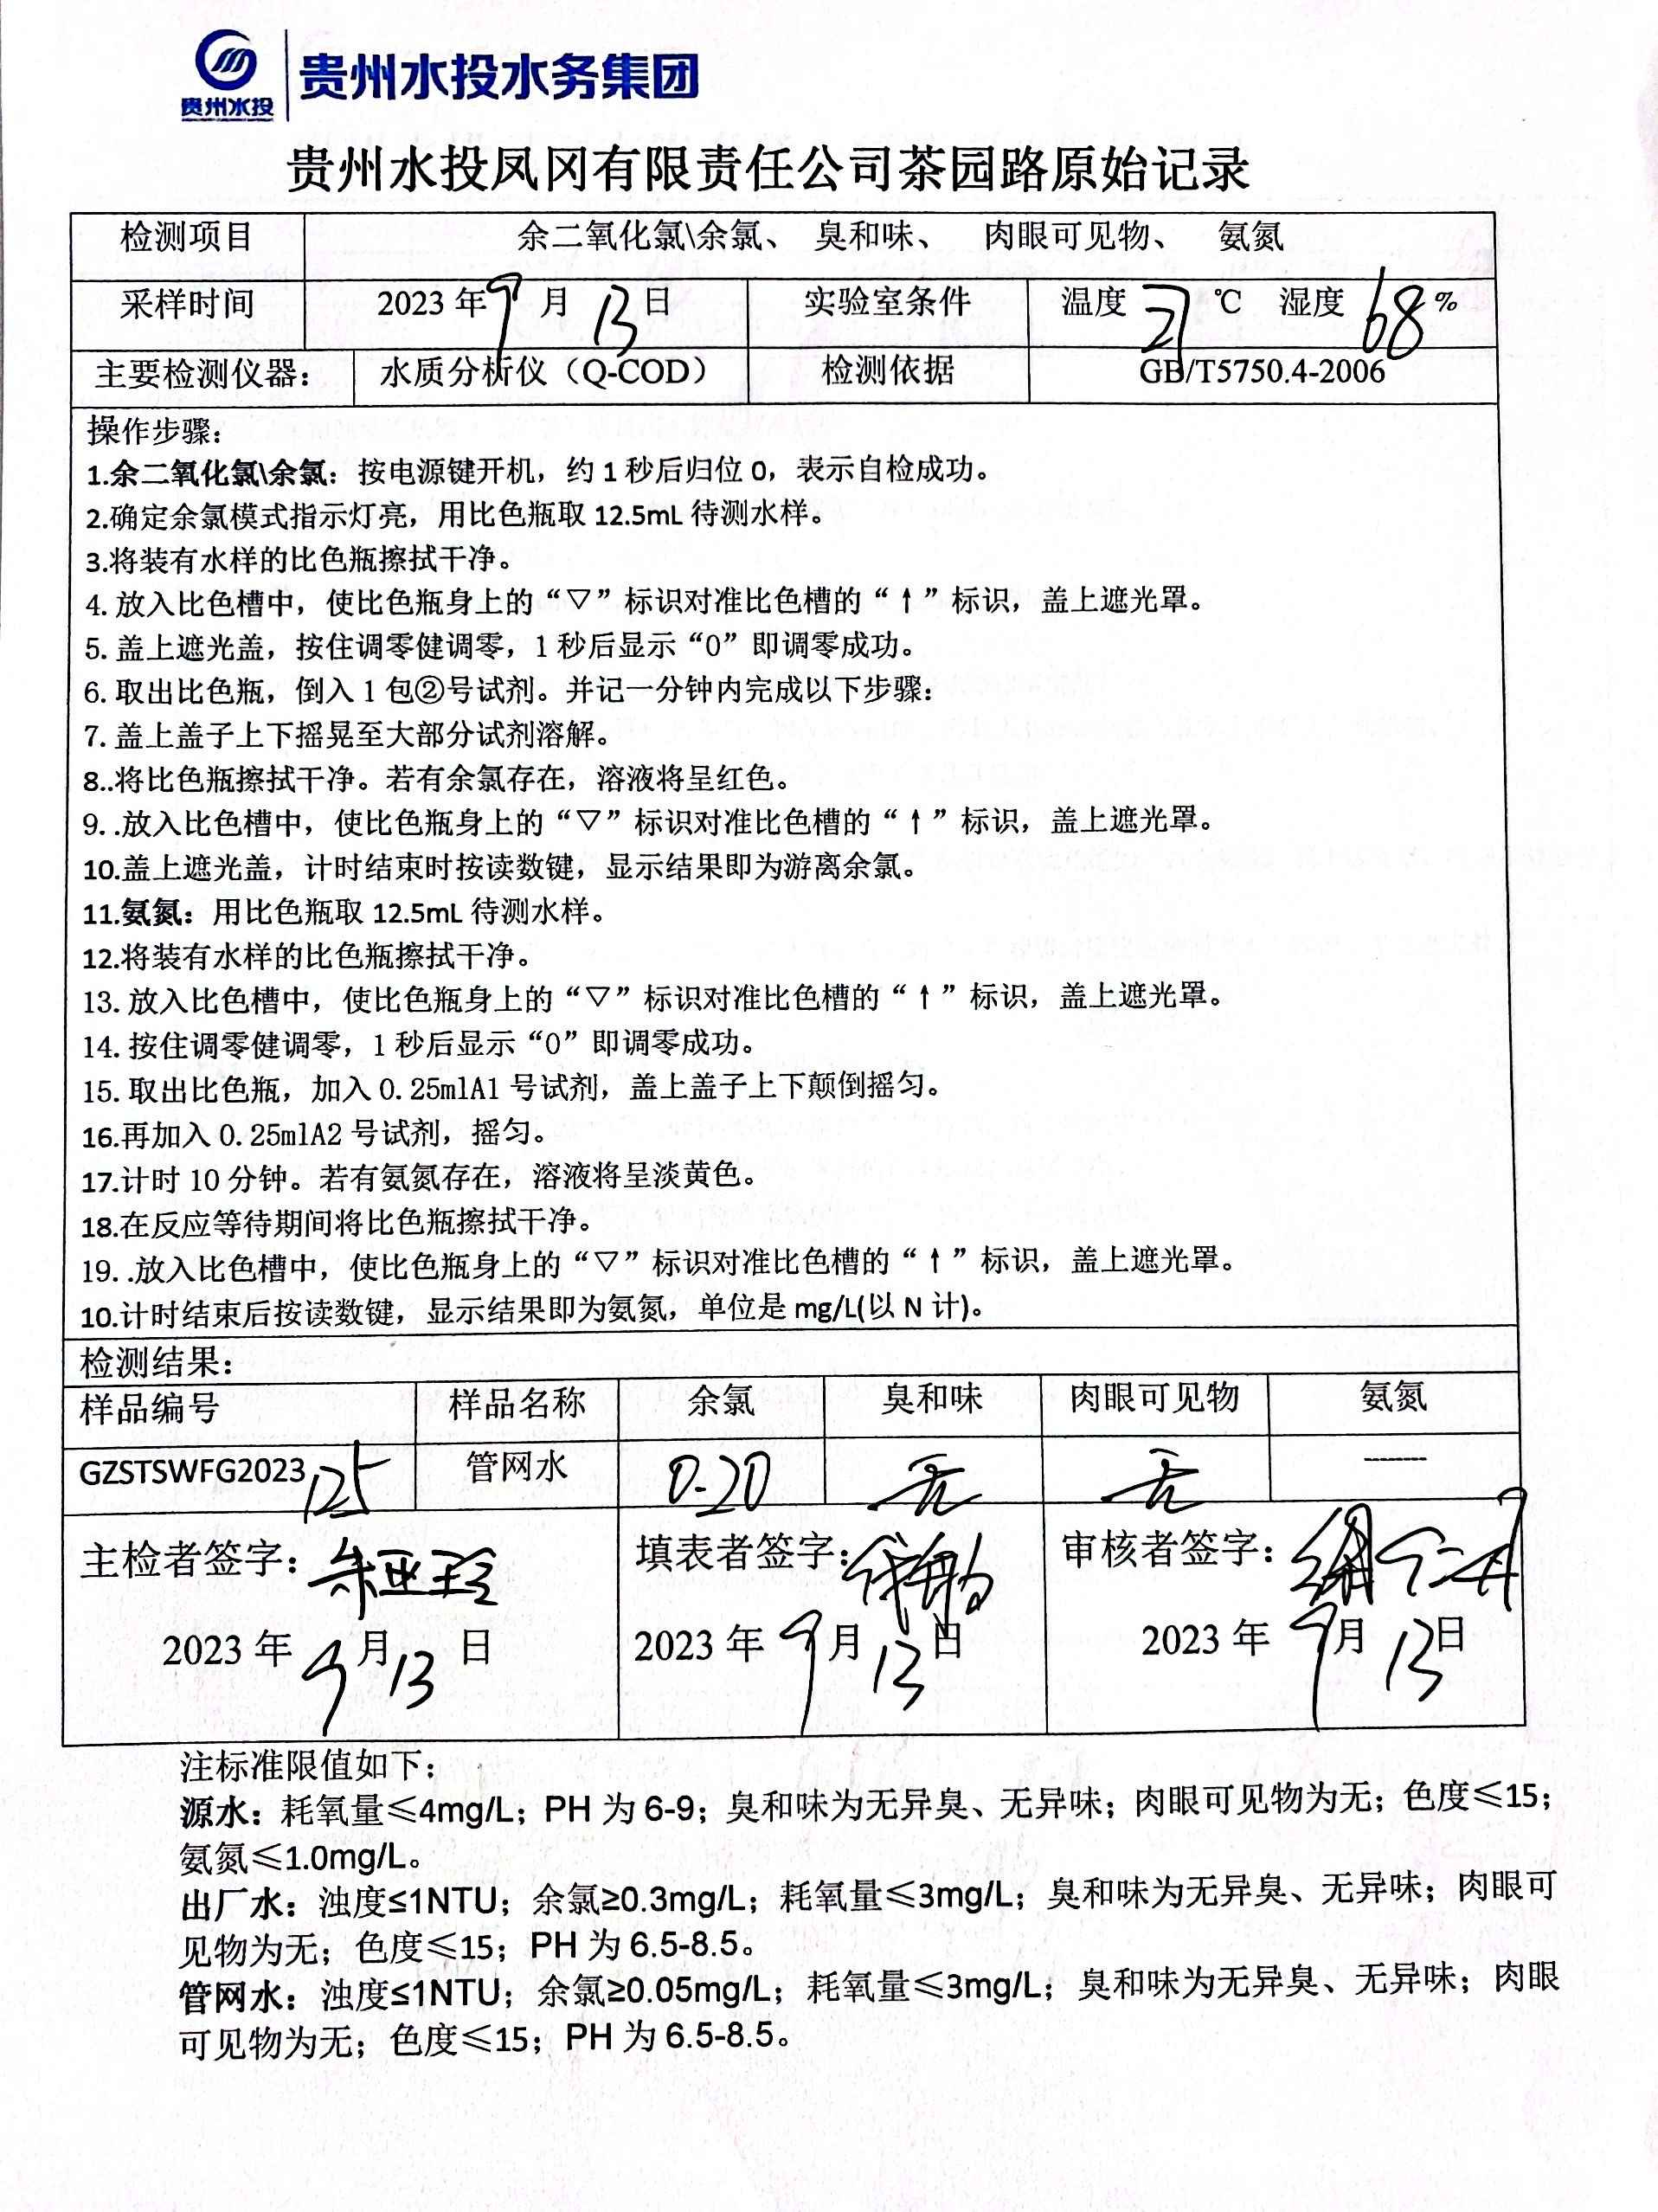 贵州水投 贵州水投水务集团
贵州水投凤冈有限责任公司茶园路原始记录
检测项目 余二氧化氯\余氯、 臭和味、 肉眼可见物、 氨氮
采样时间 2023年9月13日 实验室条件 温度21℃ 湿度68%
主要检测仪器： 水质分析仪（Q-COD） 检测依据 GB/T5750.4-2006
操作步骤：
1.余二氧化氯\余氯：按电源键开机，约1秒后归位0，表示自检成功。
2.确定余氯模式指示灯亮，用比色瓶取12.5mL待测水样。
3.将装有水样的比色瓶擦拭干净。
4.放入比色槽中，使比色瓶身上的“▽”标识对准比色槽的“↑”标识，盖上遮光罩。
5.盖上遮光盖，按住调零健调零，1秒后显示“0”即调零成功。
6.取出比色瓶，倒入1包②号试剂。并记一分钟内完成以下步骤：
7.盖上盖子上下摇晃至大部分试剂溶解。
8..将比色瓶擦拭干净。若有余氯存在，溶液将呈红色。
9..放入比色槽中，使比色瓶身上的“▽”标识对准比色槽的“↑”标识，盖上遮光罩。
10.盖上遮光盖，计时结束时按读数键，显示结果即为游离余氯。
11.氨氮：用比色瓶取12.5mL待测水样。
12.将装有水样的比色瓶擦拭干净。
13.放入比色槽中，使比色瓶身上的“▽”标识对准比色槽的“↑”标识，盖上遮光罩。
14.按住调零健调零，1秒后显示“0”即调零成功。
15.取出比色瓶，加入0.25mlA1号试剂，盖上盖子上下颠倒摇匀。
16.再加入0.25mlA2号试剂，摇匀。
17.计时10分钟。若有氨氮存在，溶液将呈淡黄色。
18.在反应等待期间将比色瓶擦拭干净。
19..放入比色槽中，使比色瓶身上的“▽”标识对准比色槽的“↑”标识，盖上遮光罩。
10.计时结束后按读数键，显示结果即为氨氮，单位是mg/L(以N计)。
检测结果：
样品编号 样品名称 余氯 臭和味 肉眼可见物 氨氮
GZSTSWFG2023125 管网水 0.20 无 无 --------
主检者签字：朱亚玲 填表者签字： 审核者签字：
2023年9月13日 2023年9月13日 2023年9月13日
注标准限值如下：
源水：耗氧量≤4mg/L；PH为6-9；臭和味为无异臭、无异味；肉眼可见物为无；色度≤15；
氨氮≤1.0mg/L。
出厂水：浊度≤1NTU；余氯≥0.3mg/L；耗氧量≤3mg/L；臭和味为无异臭、无异味；肉眼可
见物为无；色度≤15；PH为6.5-8.5。
管网水：浊度≤1NTU；余氯≥0.05mg/L；耗氧量≤3mg/L；臭和味为无异臭、无异味；肉眼
可见物为无；色度≤15；PH为6.5-8.5。